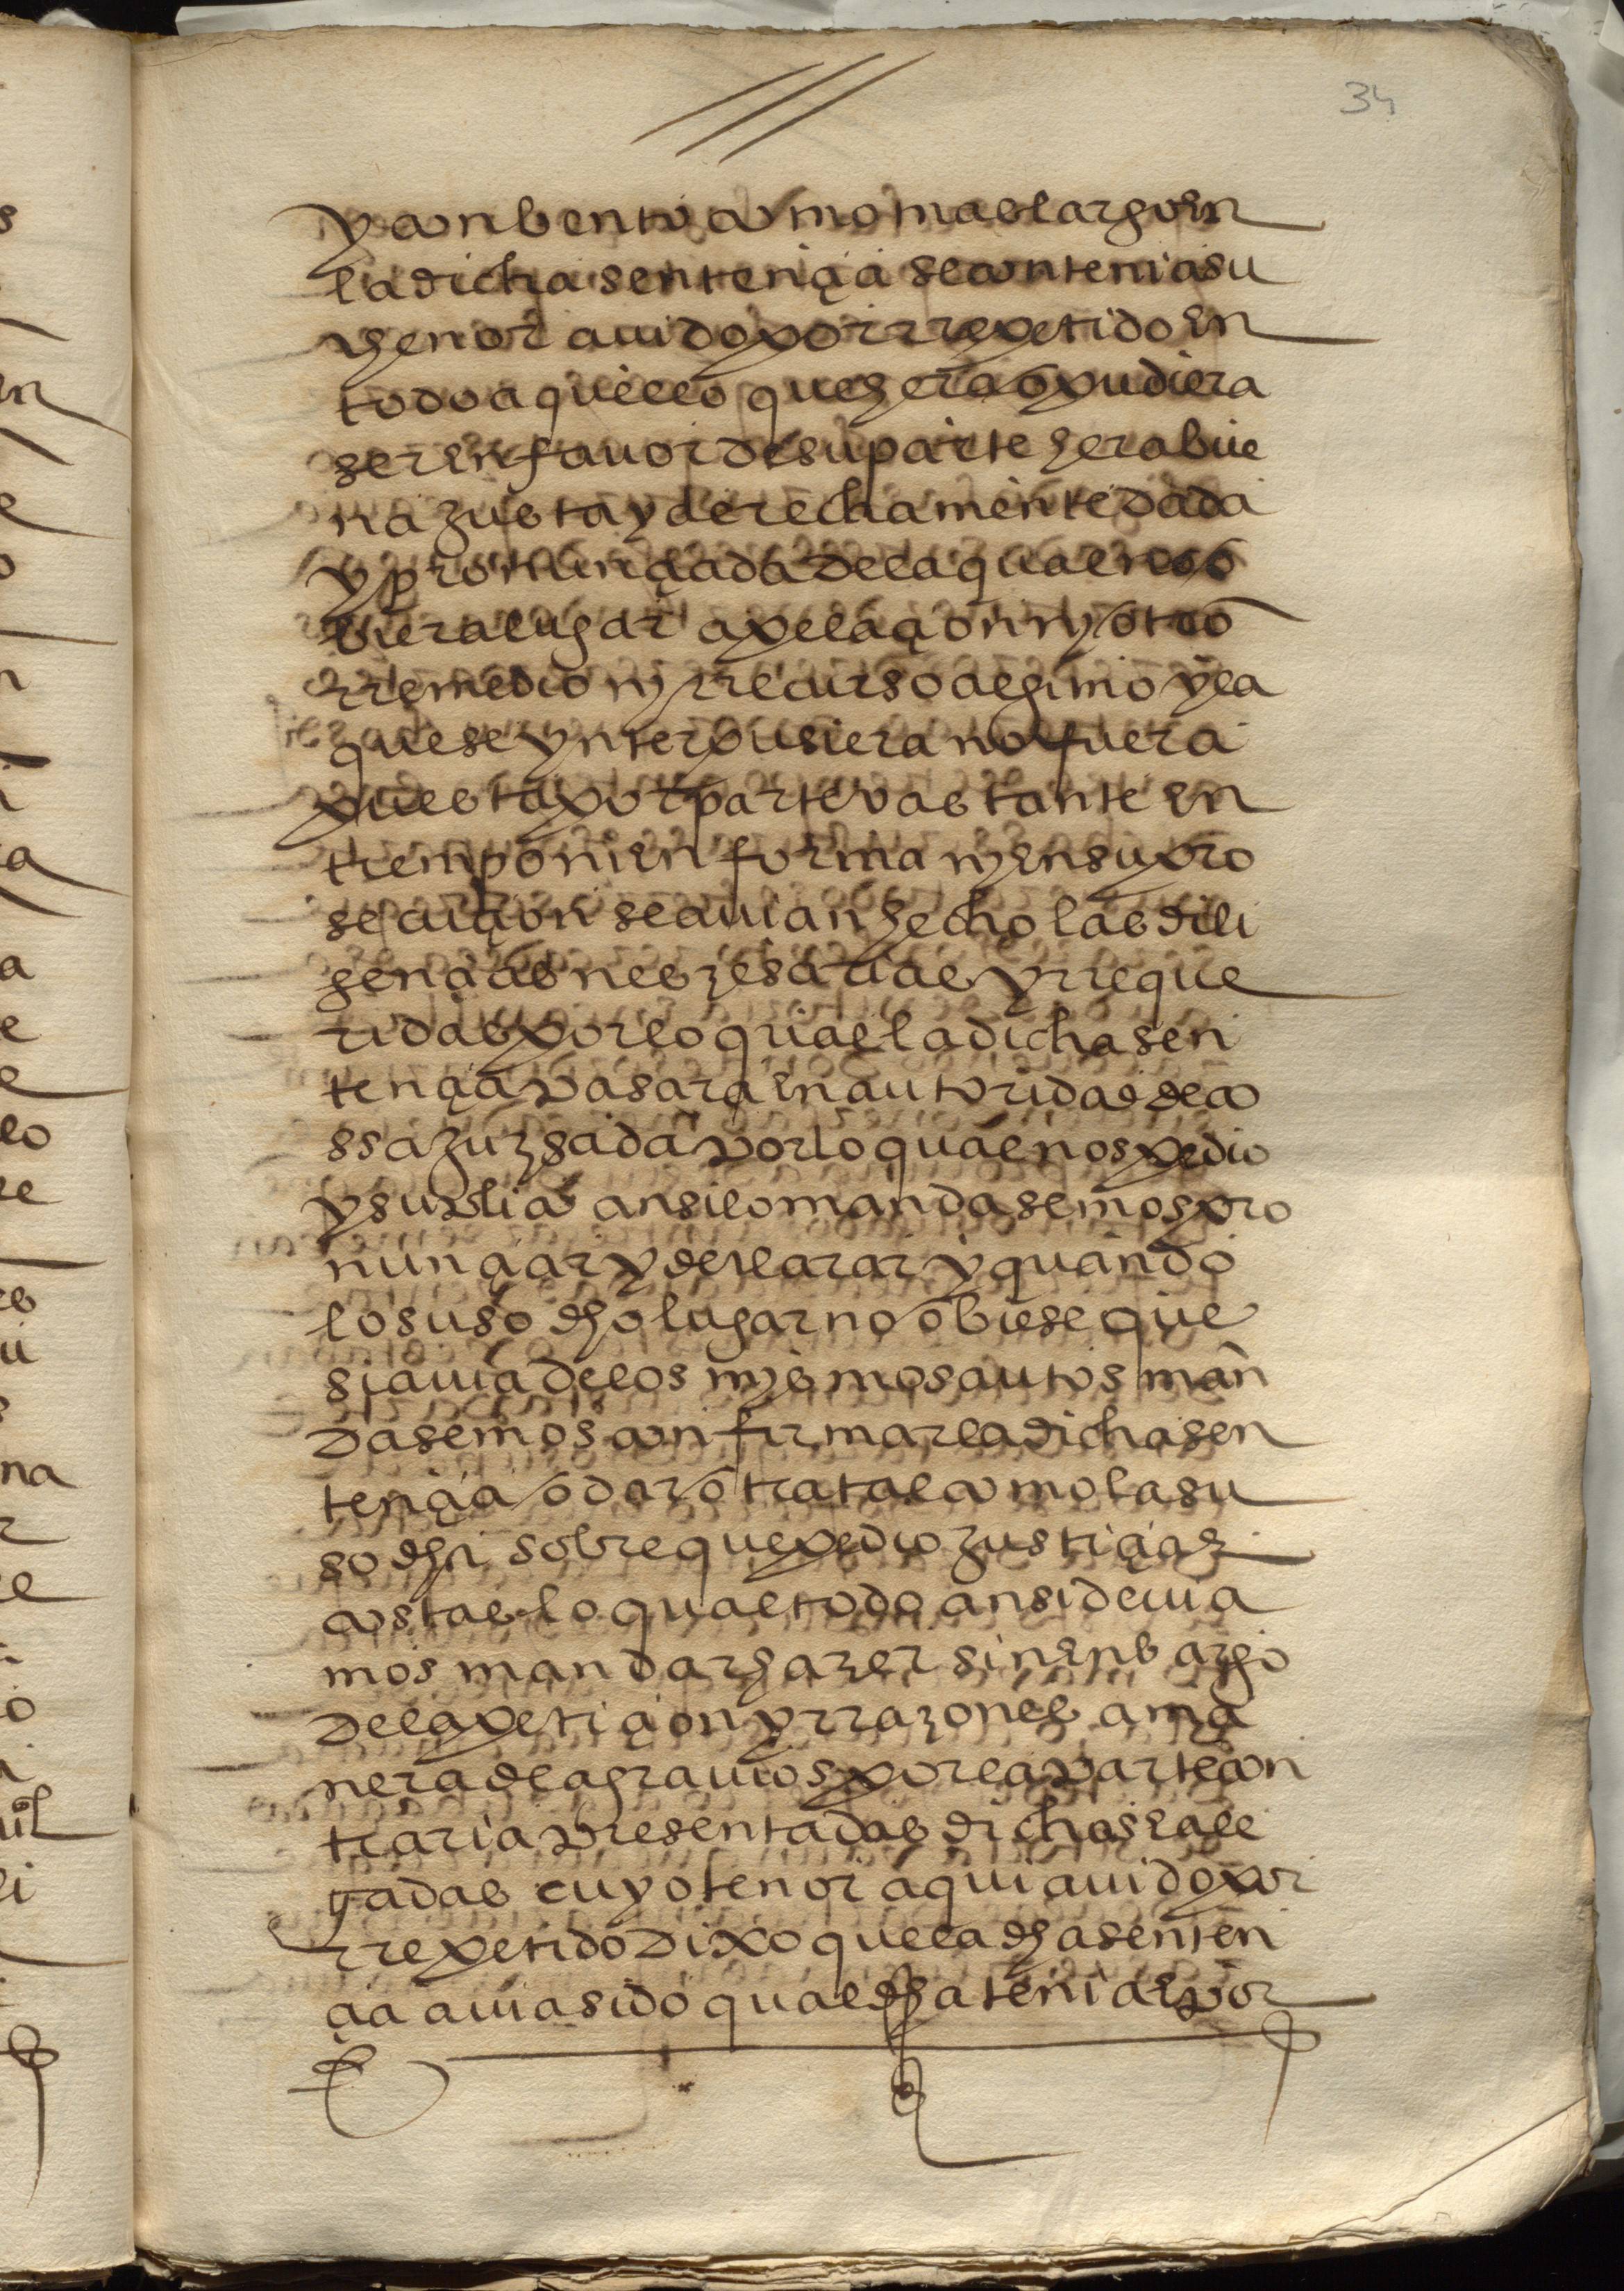 34
y conbento como mas largo en
la dicha sentençia se contenia su
thenor auido por rrepetido en
todo aquello que hera o pudiera
ser en fauor de su parte hera bue
na justa y derechamente dada
y pronunçiada de la qual no o
viera lugar apelaçion ny otro
rremedio ny rrecurso alguno y la
que se ynterpusiera no fuera
puesta por parte vastante en
tiempo ni en forma ny en su pro
secuçion se auian hecho las dili
gençias nesçesarias y rreque
ridas por lo qual la dicha sen
tençia pasara en autoridad de co
ssa juzgada por lo qual nos pedio
y suplico ansi lo mandasemos pro
nunçiar y declarar y quando
lo suso dho lugar no obiese que
si auia de los mysmos autos man
dasemos confirmar la dicha sen
tençia o dar otra tal como la su
so dha sobre que pedio justiçia e
costas lo qual todo ansi deuia
mos mandar hazer sin enbargo
de la petiçion y rrazones a ma
nera de agrauios por la parte con
traria presentadas dichas e ale
gadas cuyo tenor aqui auido por
rrepetido dixo que la dha senten
çia auia sido qual dha tenia e por